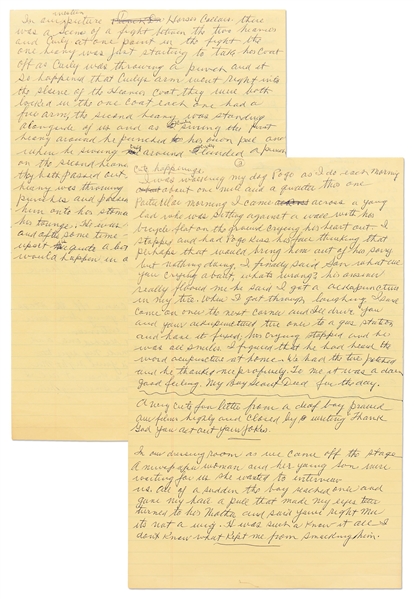 In our picture Horses Collars there
was a scene of a fight between the two heavies
and Curly at one point in the fight the
one heavy was just starting to take his coat
off as Curly was throwing a punch and it
so happened that Curlys arm went right into
the sleeve of the Heavies Coat, they were both
locked in the one coat each one had a
free arm, the second heavy was standing
alongside of us and as the first
heavy around he punched his own pal and
when he swung around I landed a punch
on the second heavy
they both passed out.
heavy was throwing
punches and
him onto his stomach
his tounge. He was
and after some time
upset quite a bit
would happen in a
Cute happenings.
I was walking my dog Pogo as I do each morning
about one mile and a quarter this one
particular morning I came across a young
lad who was sitting against a wall with his
bicycle flat on the ground crying his heart out. I
stopped and had Pogo kiss his face thinking that
perhaps that would bring him out of his sorry
but nothing doing. I finally said son what are
you crying about, whats wrong? his answer
really floored me he said I got a acdapuncture
in my tire. When I got through laughing I said
come on over the next corner and Ill drive you
and your acdpunctured tire over to a gas station
and have it fixed. His crying stopped and he
was all smiles I figured that he had heard the
word acupuncture at home. We had the tire patched
and he thanked me profusely. To me it was a darn
good feeling. My Boy Scout Deed for the day.
A very cute fan letter from a deaf boy praised
our films highly and closed by writing Thank
God you act out your jokes.
In our dressing room as we came off the stage
a newspaper woman and her young son were
waiting for us she wanted to interview
us. All of a sudden the boy reached over and
gave my hair a pull that made my eyes tear
turned to his Mother and said you're right Ma
its not a wig. He was such a know it all I
dont know what kept me from smacking him.